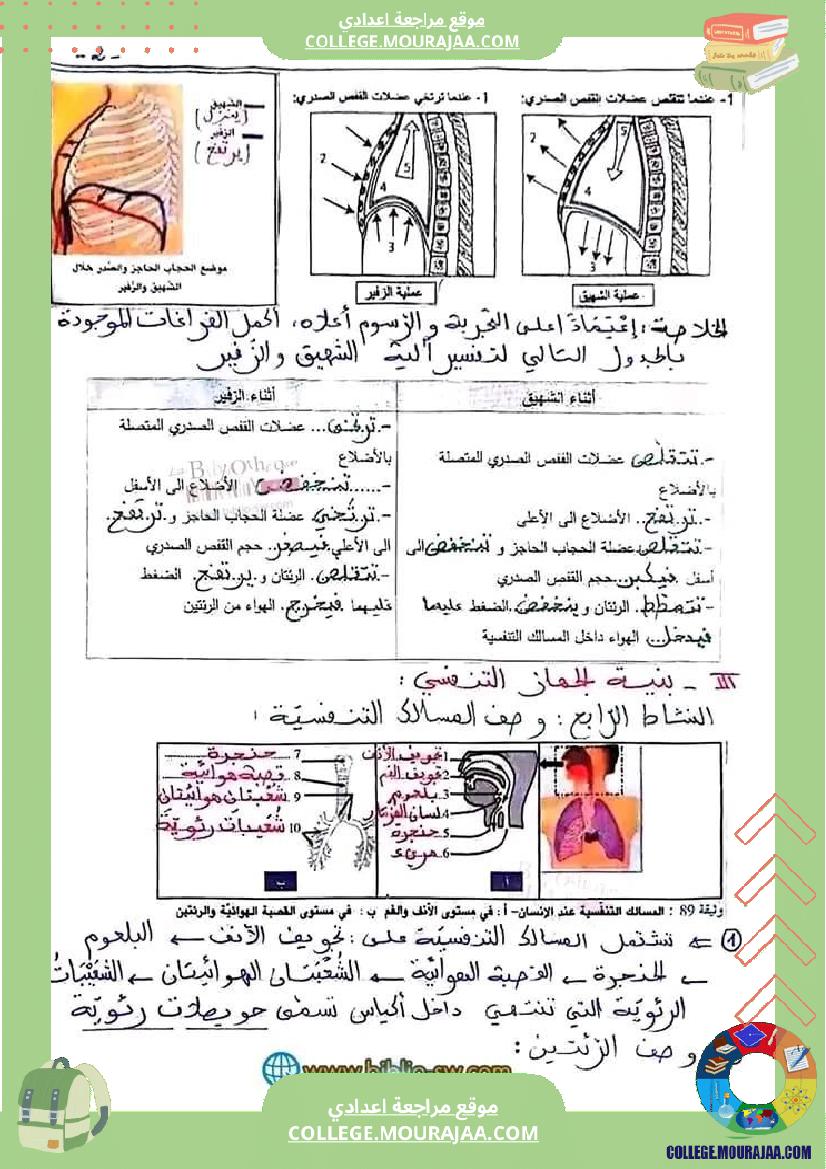 موقع مراجعة اعدادي
COLLEGE.MOURAJAA.COM
- 2 -
1- عندما تتقلص عضلات القفص الصدري:
1- عندما ترتخي عضلات القفص الصدري:
الشهيق
(ينزل)
الزفير
(يرتفع)
2
5
4
3
2
5
4
3
عملية الشهيق
عملية الزفير
موضع الحجاب الحاجز والصدر خلال
الشهيق والزفير
الخلاصة: إعتمادا على التجربة والرسوم أعلاه، أكمل الفراغات الموجودة
بالجدول التالي لتفسير آلية الشهيق والزفير
أثناء الشهيق
-.تتقلص عضلات القفص الصدري المتصلة
بالأضلاع
-..ترتفع.. الأضلاع الى الأعلى
-.تتقلص.عضلة الحجاب الحاجز و تنخفض الى
أسفل .فيكبر.حجم القفص الصدري
-تتمطط. الرئتان و ينخفض.الضغط عليهما
فيدخل... الهواء داخل المسالك التنفسية
أثناء الزفير
-.ترتخي... عضلات القفص الصدري المتصلة
بالأضلاع
-......تنخفض الأضلاع الى الأسفل
-.ترتخي. عضلة الحجاب الحاجز و ترتفع..
الى الأعلى .فيصغر.. حجم القفص الصدري
-.تتقلص. الرئتان و .يرتفع. الضغط
عليهما .فيخرج. الهواء من الرئتين
La BibliOtheque
III - بنية الجهاز التنفسي:
النشاط الرابع: وصف المسالك التنفسية:
1 تجويف الأنف
2 تجويف الفم
3 بلعوم
4 لسان المزمار
5 حنجرة
6 مريء
أ
7 حنجرة
8 قصبة هوائية
9 شعبتان هوائيتان
10 شعيبات رئوية
ب
وثيقة 89 : المسالك التنفسية عند الإنسان- أ: في مستوى الأنف والفم ب: في مستوى القصبة الهوائية والرئتين
① ⇐ تشتمل المسالك التنفسية على: تجويف الأنف ← البلعوم
← الحنجرة ← القصبة الهوائية ← الشعبتان الهوائيتان ← الشعيبات
الرئوية التي تنتهي داخل أكياس تسمى حويصلات رئوية
وصف الرئتين:
www.biblio-sw.com
موقع مراجعة اعدادي
COLLEGE.MOURAJAA.COM
COLLEGE.MOURAJAA.COM